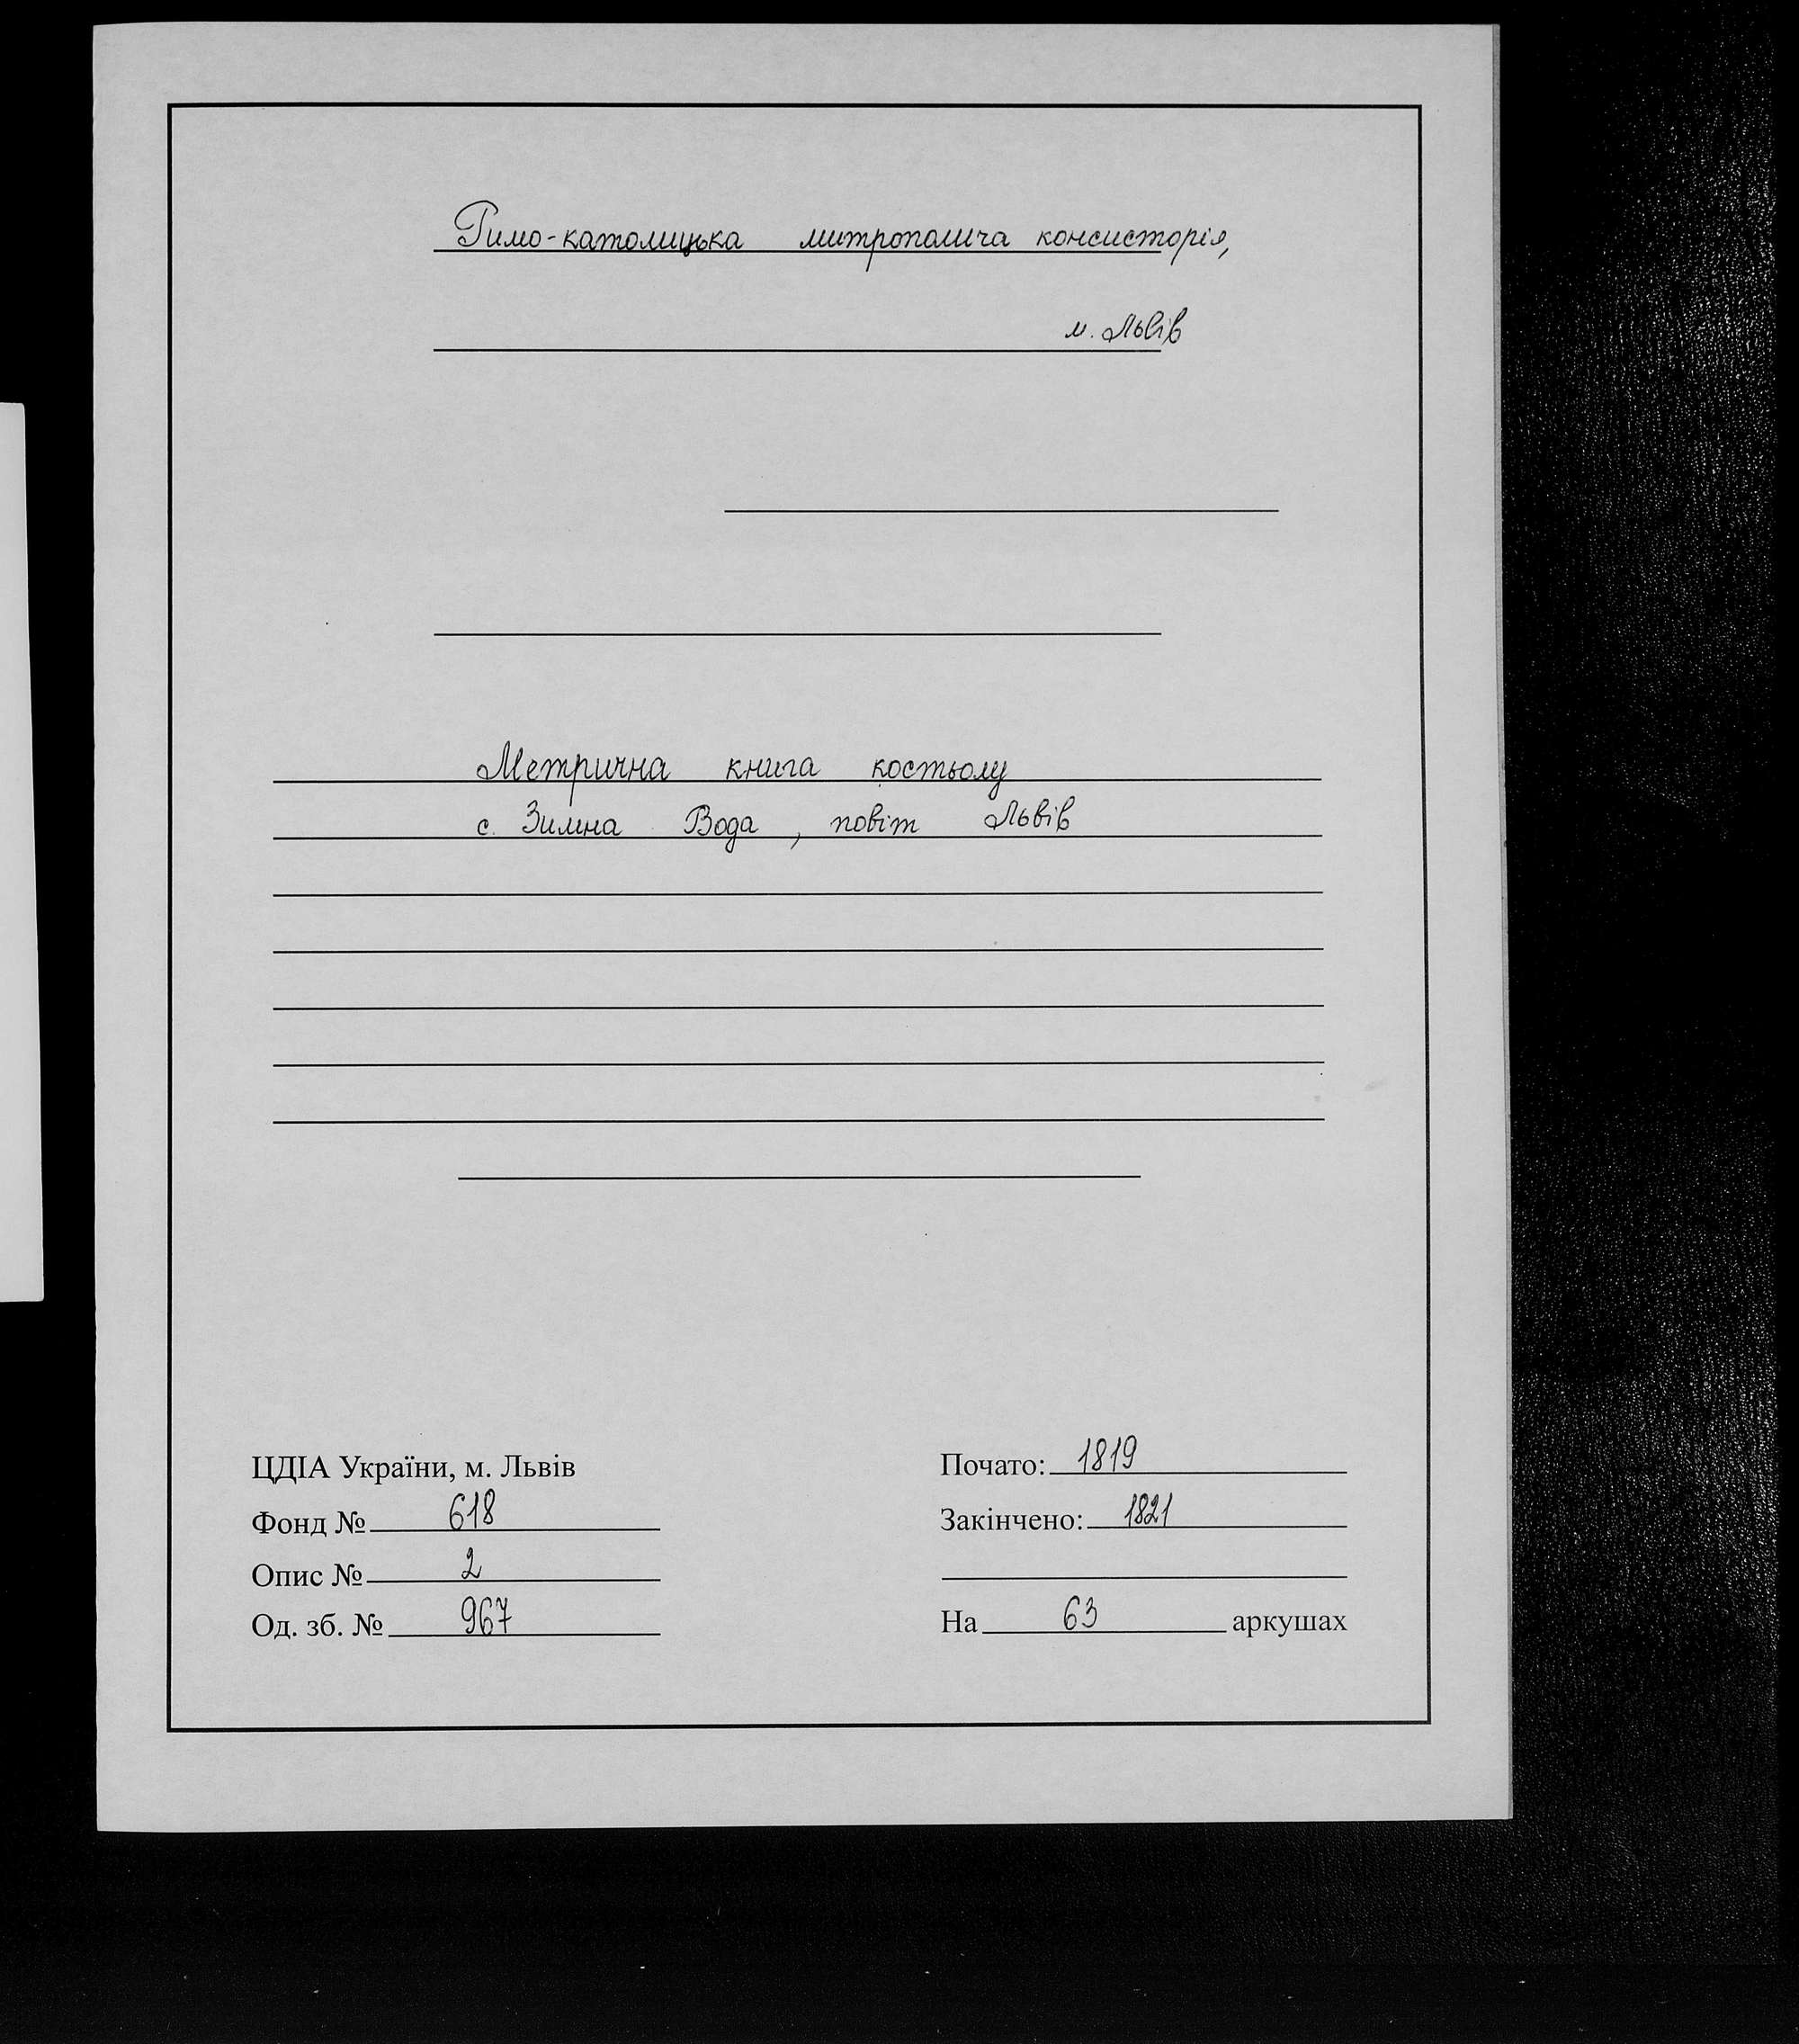 Римо-католицька митрополича консисторія,
м. Львів
Метрична книга костьолу
с. Зимна Вода, повіт Львів
ЦДІА України, м. Львів
Фонд № 618
Опис № 2
Од. зб. № 967
Почато: 1819
Закінчено: 1821
На 63 аркушах